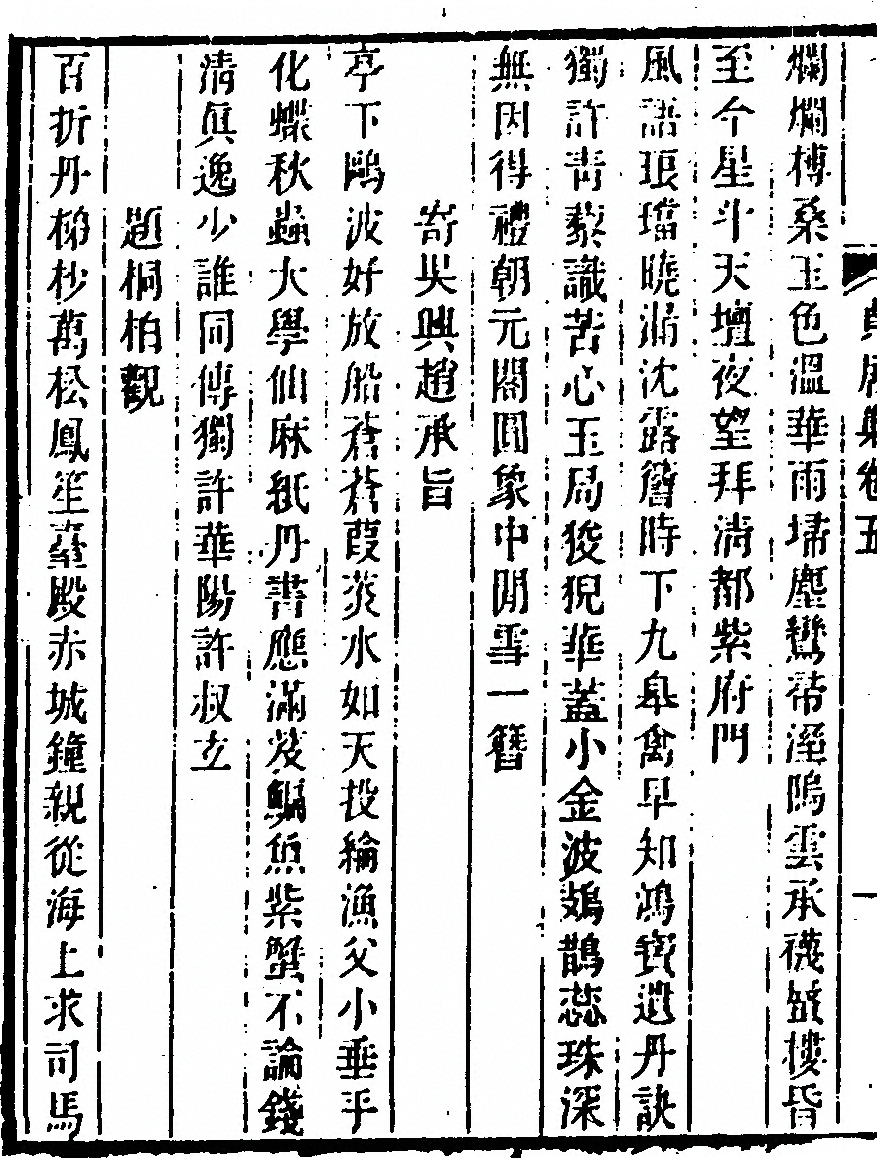 貞居集卷五
爛爛榑桑玉色溫華雨埽塵鸞帚溼隝雲承襪蜺樓昏
至今星斗天壇夜望拜淸都紫府門
風語琅璫曉漏沈露簷時下九皋禽早知鴻寶遺丹訣
獨許靑藜識苦心玉局狻猊華蓋小金波鳷鵲蕊珠深
無因得禮朝元閣圓象中閒雪一簪
寄吳興趙承旨
亭下鷗波好放船蒼蒼葭菼水如天投綸漁父小垂手
化蝶秋蟲大學仙麻紙丹書應滿笈鯿魚紫蟹不論錢
淸眞逸少誰同傳獨許華陽許叔玄
題桐柏觀
百折丹梯杪萬松鳳笙臺殿赤城鐘親從海上求司馬